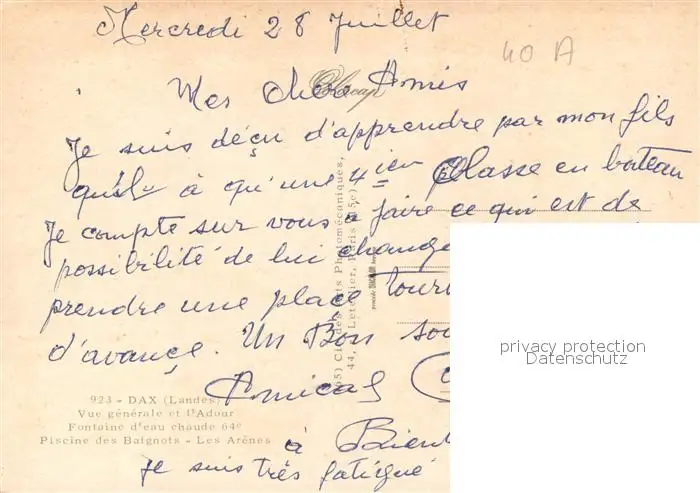 Mercredi 28 Juillet
40 A
Mes Chers Amis
Je suis déçu d'apprendre par mon fils
qu'il à qu'une 4ien Classe en bateau
Je compte sur vous à faire ce qui est de
possibilité de lui change
prendre une place tour
d'avançe. Un Bon sou
Amical
à Bient
je suis très fatigué
923 - DAX (Landes)
Vue générale et l'Adour
Fontaine d'eau chaude 64°
Piscine des Baignots - Les Arènes
Arts Photomécaniques,
44, Letellier, Paris (15e)
privacy protection
Datenschutz